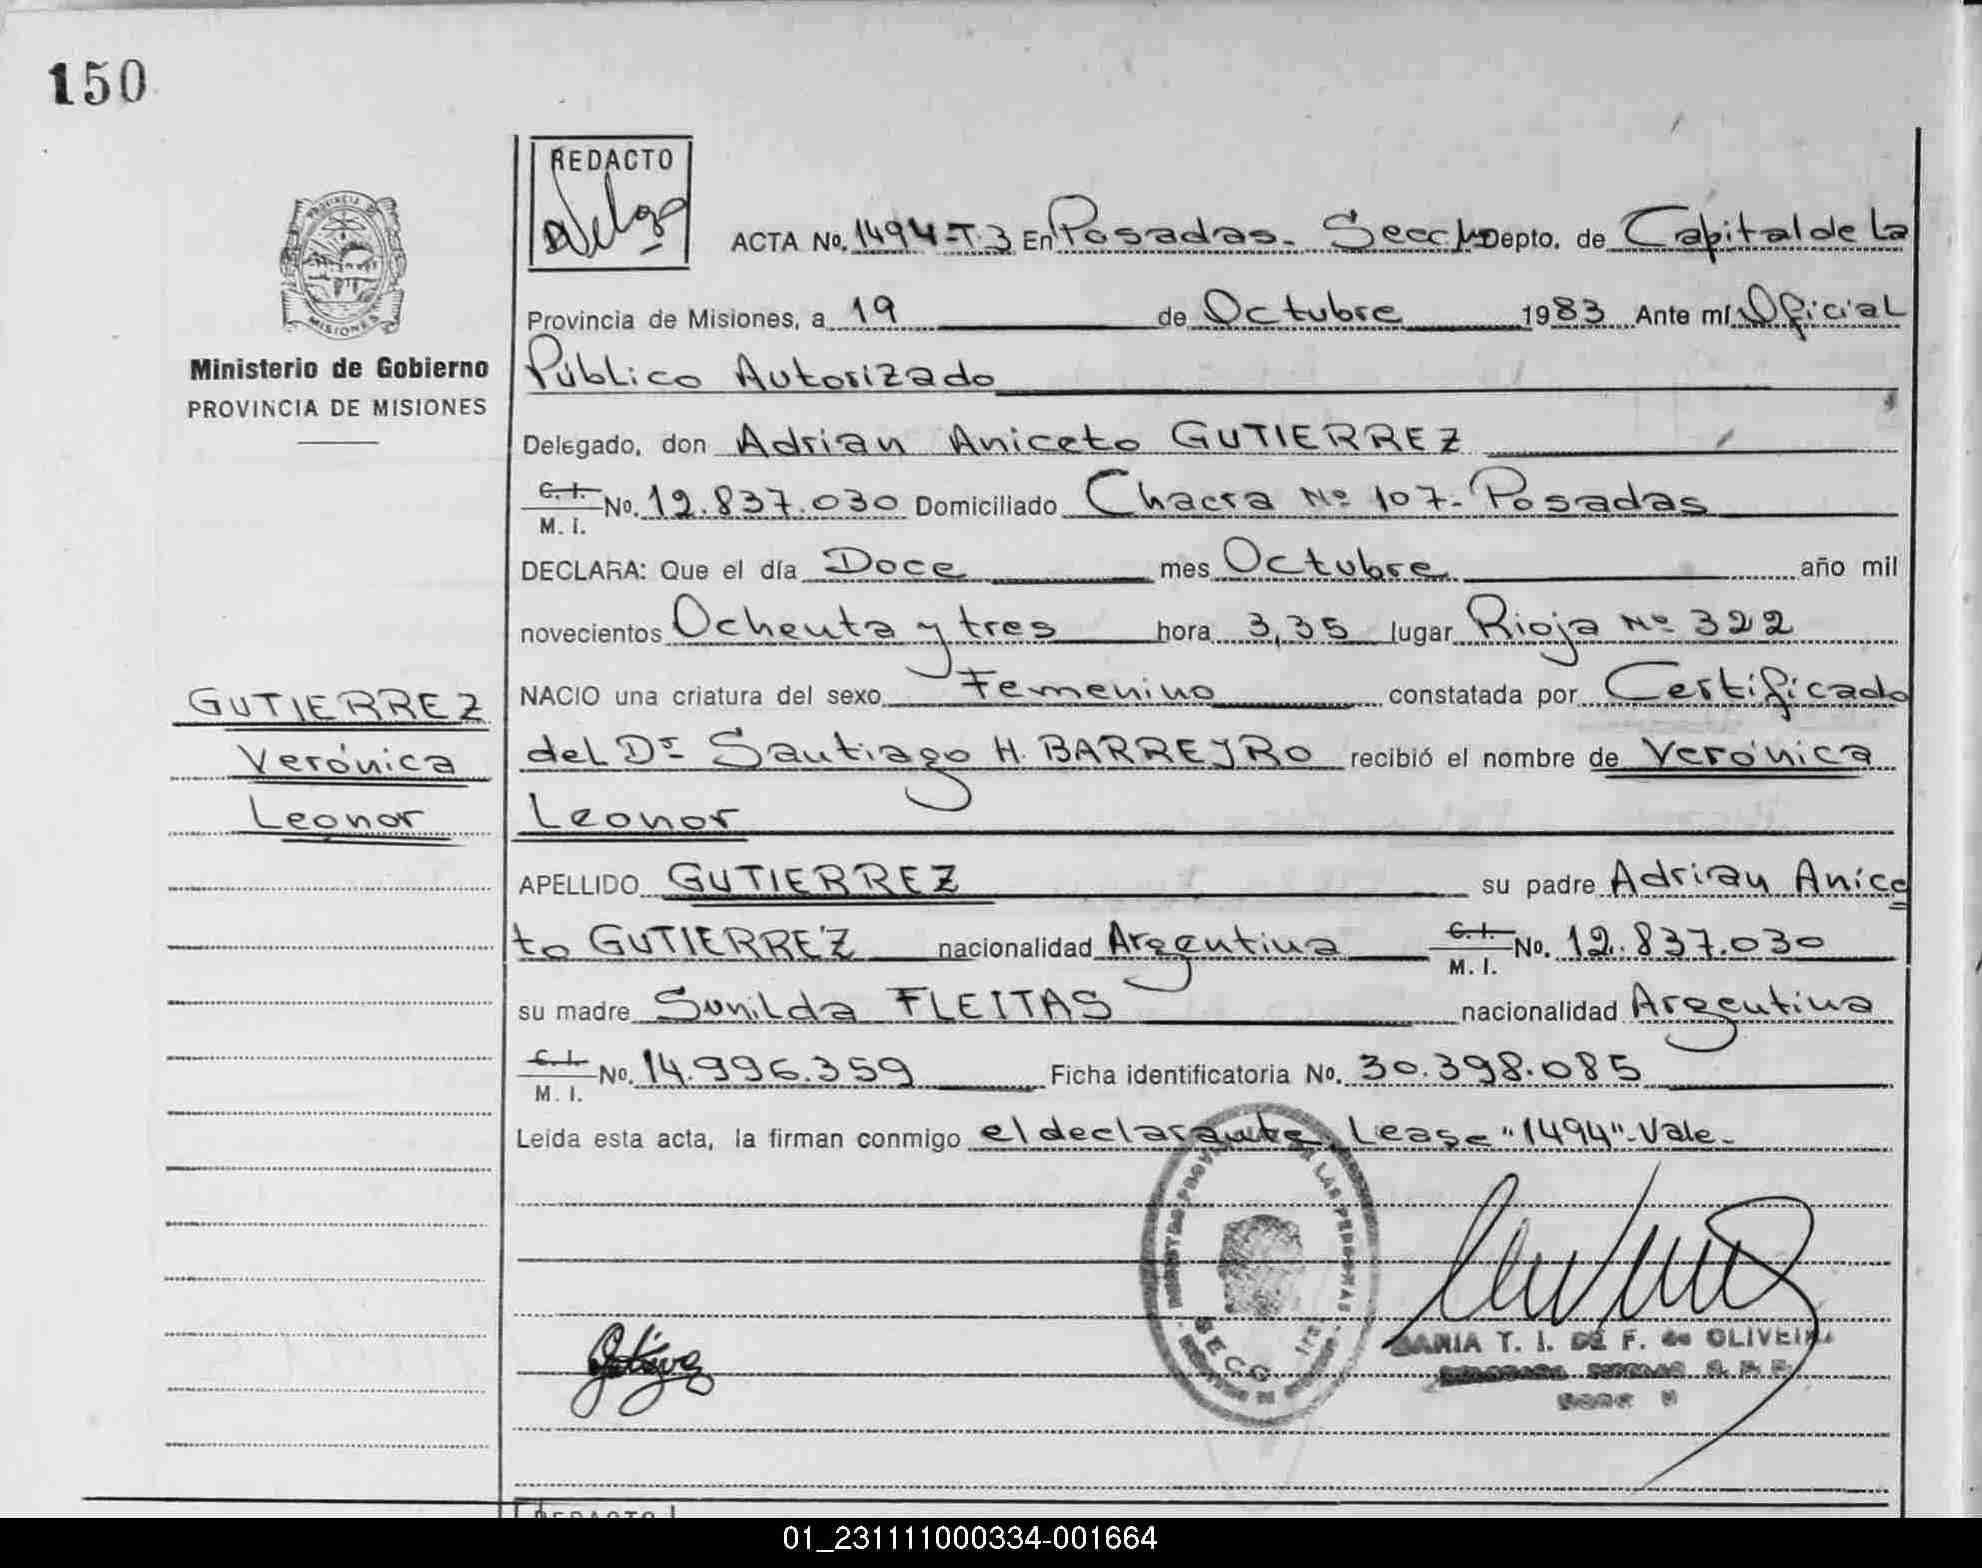 150
REDACTO
PROVINCIA DE
MISIONES
Ministerio de Gobierno
PROVINCIA DE MISIONES
GUTIERREZ
Verónica
Leonor
ACTA No. 1494-T.3 En Posadas. Secc Depto. de Capital de la
Provincia de Misiones, a 19 de Octubre 1983 Ante mí Oficial
Público Autorizado
Delegado, don Adrian Aniceto GUTIERREZ
C. I. M. I. No. 12.837.030 Domiciliado Chacra Nº 107- Posadas
DECLARA: Que el día Doce mes Octubre año mil
novecientos Ochenta y tres hora 3,35 lugar Rioja Nº 322
NACIO una criatura del sexo Femenino constatada por Certificado
del Dr Santiago H. BARREYRO recibió el nombre de Verónica
Leonor
APELLIDO GUTIERREZ su padre Adrian Anice
to GUTIERREZ nacionalidad Argentina C. I. M. I. No. 12.837.030
su madre Sunilda FLEITAS nacionalidad Argentina
C. I. M. I. No. 14.996.359 Ficha identificatoria No. 30.398.085
Leída esta acta, la firman conmigo el declarante. Lease "1494"- Vale-
LAS PERSONAS
SECC
MARIA T. I. DE F. de OLIVEIRA
REDACTO
01_231111000334-001664